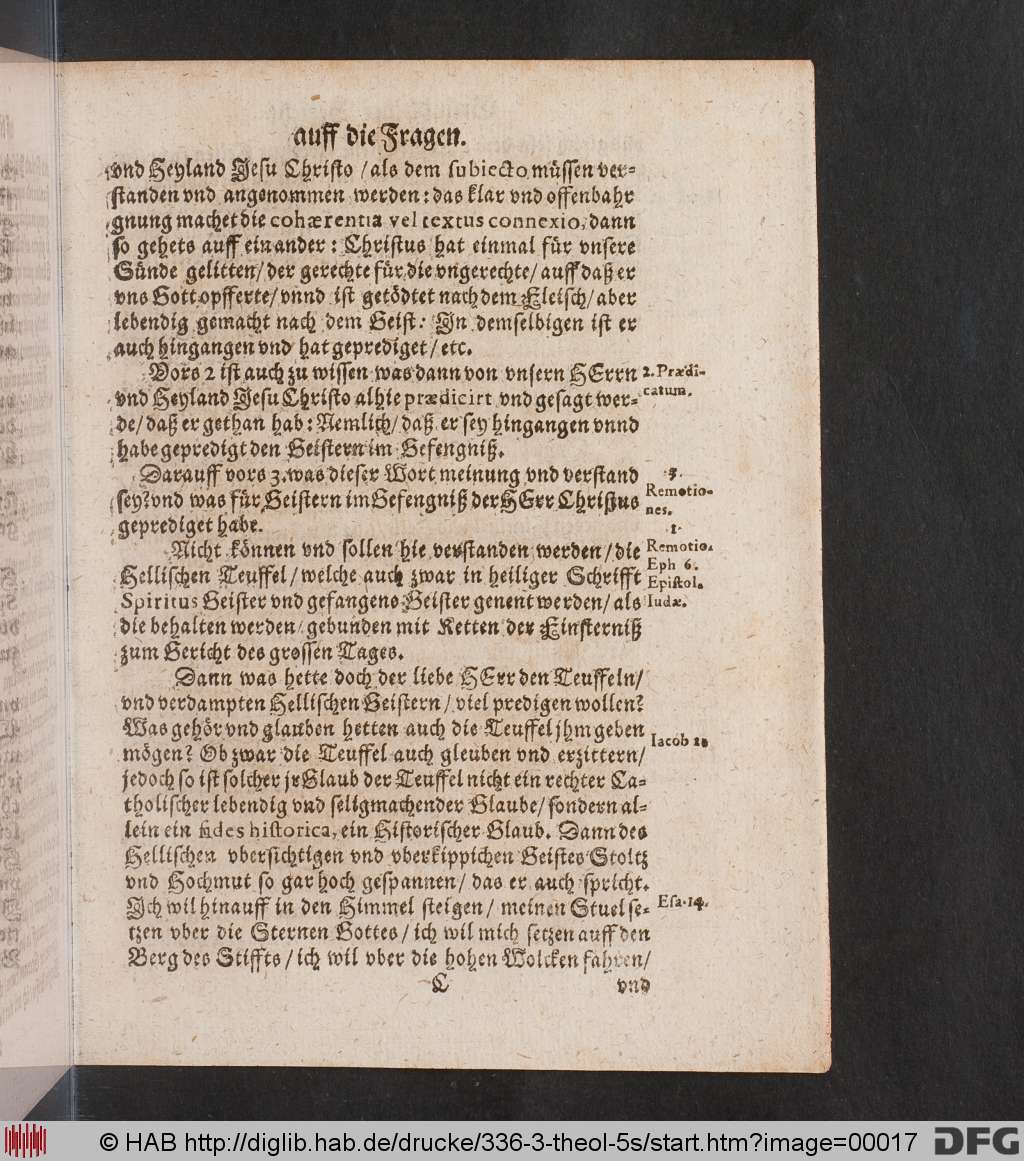 auff die Fragen.
vnd Heyland Jesu Christo / als dem subiecto müssen ver-
standen vnd angenommen werden: das klar vnd offenbahr
gnung machet die cohærentia vel textus connexio, dann
so gehets auff einander: Christus hat einmal für vnsere
Sünde gelitten / der gerechte für die vngerechte / auff daß er
vns Gott opfferte / vnnd ist getödtet nach dem Fleisch / aber
lebendig gemacht nach dem Geist: In demselbigen ist er
auch hingangen vnd hat geprediget / etc.
Vors 2 ist auch zu wissen was dann von vnsern HErrn
2. Prædi-
catum.
vnd Heyland Jesu Christo alhie prædicirt vnd gesagt wer-
de / daß er gethan hab: Nemlich / daß er sey hingangen vnnd
habe gepredigt den Geistern im Gefengniß.
Darauff vors 3. was dieser Wort meinung vnd verstand
3.
Remotio-
nes.
sey? vnd was für Geistern im Gefengniß der HErr Christus
geprediget habe.
1.
Remotio.
Eph 6.
Epistol.
Iudæ.
Nicht können vnd sollen hie verstanden werden / die
Hellischen Teuffel / welche auch zwar in heiliger Schrifft
Spiritus Geister vnd gefangene Geister genent werden / als
die behalten werden gebunden mit Ketten der Finsterniß
zum Gericht des grossen Tages.
Dann was hette doch der liebe HErr den Teuffeln /
vnd verdampten Hellischen Geistern / viel predigen wollen?
Was gehör vnd glauben hetten auch die Teuffel jhm geben
Iacob 2.
mögen? Ob zwar die Teuffel auch gleuben vnd erzittern /
jedoch so ist solcher jr Glaub der Teuffel nicht ein rechter Ca-
tholischer lebendig vnd seligmachender Glaube / sondern al-
lein ein fides historica, ein Historischer Glaub. Dann des
Hellischen vbersichtigen vnd vberkippichen Geistes Stoltz
vnd Hochmut so gar hoch gespannen / das er auch spricht.
Ich wil hinauff in den Himmel steigen / meinen Stuel se-
Esa. 14.
tzen vber die Sternen Gottes / ich wil mich setzen auff den
Berg des Stiffts / ich wil vber die hohen Wolcken fahren /
C
vnd
© HAB http://diglib.hab.de/drucke/336-3-theol-5s/start.htm?image=00017
DFG